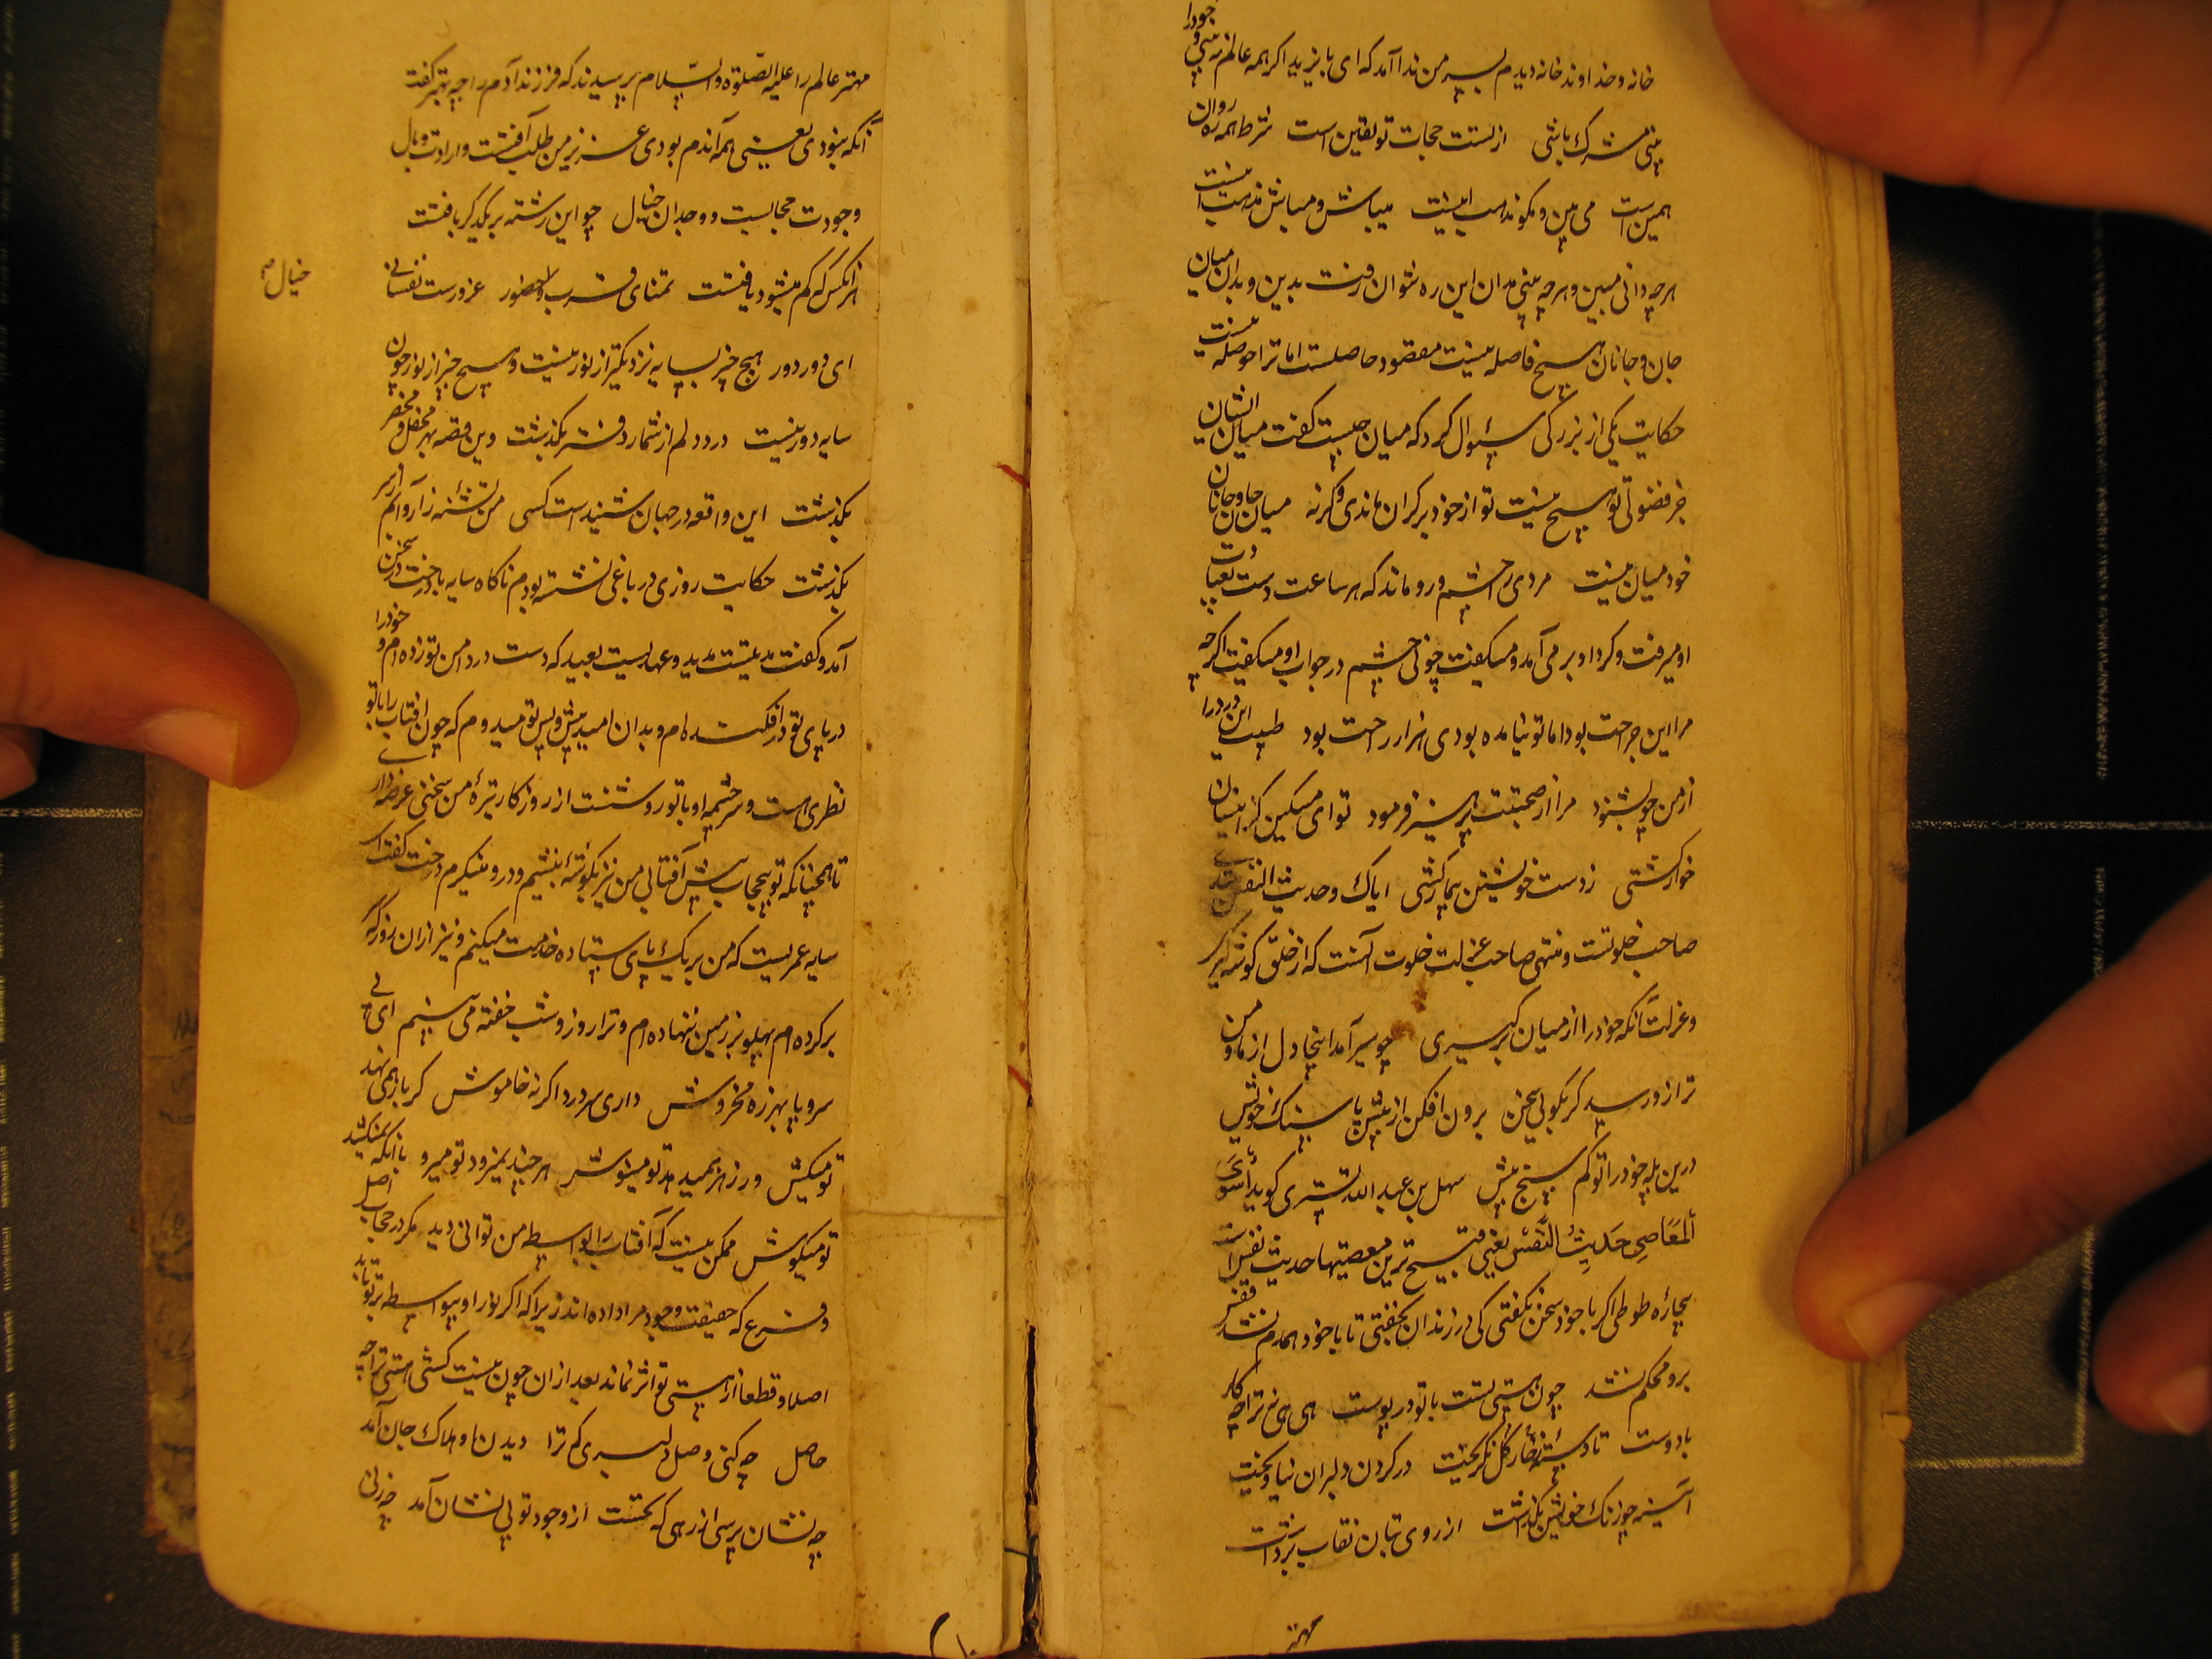 خانه و خداوند خانه دیدم بسر من ندا آمد که ای بایزید اکر همه عالم را بینی و خودرا
بینی مشرک باشی از تست حجاب تو یقین است شرط همه ره روان
همین است می بین و مکو مذهب این نیست میباش و مباش مذهب این است
هرچه دانی مبین و هرچه بینی مدان این ره نتوان رفت بدین و بدان میان
جان و جانان هیچ فاصله نیست مقصود حاصلست اما ترا حوصله نیست
حکایت یکی از بزرکی سئوال کرد که میان چیست کفت میان ایشان
جز فضولی تو هیچ نیست تو از خود بر کران ماندی وکرنه میان جان و جانان
خود میان نیست مردی را چشم درد ماند که هر ساعت دوست بعیادت
او میرفت و کرد او بر می آمد و میکفت چونی چشم در جواب او میکفت اکرچه
مرا این جراحت بود اما تو نیامده بودی هزار راحت بود طبیب این درد را
از من چو بشنود مرا از صحبتت پرهیز فرمود تو ای مسکین کز اینسان
خوار کشتی ز دست خویشتن بیمار کشتی ایاک و حدیث النفس
صاحب خلوتست و منتهی صاحب عزلت خلوت آنست که از خلق کوشه کیری
و عزلت آنکه خودرا از میان برکیری چو سیر آمد اینجا دل از ما و من
ترا زور سد کر بکویی سخن برون افکن از پیش پا سنک خویش
درین پله خودرا تو کم سنج بیش سهل بن عبد الله تستری کوید أسْوَی
ألمَعَاصِی حَدیثُ النَّفس یعنی قبیح ترین معصیتها حدیث نفس است
بیچاره طوطی اکر با خود سخن نکفتی کی در زندان بخفتی تا با خود همدم نشد قفس
برو محکم نشد چون هستی تست با تو در پوست هی هی نی ترا چه کار
با دوست تا دسته خار کل نکریخت در کردن دلبران نیاویخت
آیینه چو زنک خویش بکذاشت از روی بتان نقاب برداشت
مهتر
مهتر عالم را علیه الصلوة والسّلام پرسیدند که فرزند آدم را چه بهتر کفت
آنکه نبودی یعنی همه آندم بودی عزیز من طلب آفتست و ارادت وبال
وجودت حجابست و وجدان خیال چو این رشته بر یکدکر بافتست
هر انکس که کم میشود یافتست تمنای قرب و حضور غرورست نفسانی
خیال صح
ای دور دور هیچ چیز بسایه نزدیکتر از نور نیست و هیچ چیز از نور چون
سایه دور نیست درد دلم از شمار دفتر بکذشت وین قصه بهر محفل و محضر
بکذشت این واقعه در جهان شنیدست کسی من تشنه ز آب و آبم از سر
بکذشت حکایت روزی در باغی نشسته بودم ناکاه سایه با درخت در سخن
آمد و کفت مدتیست مدید و عهدیست بعید که دست در دامن تو زده ام و خودرا
در پای تو در افکنده ام و بدان امید پیش و پس تو میدوم که چون افتاب را با تو
نظری هست و سرچشمه او با تو روشنست از روز کار تیرهٔ من سخنی عرضه داری
تا همچنانکه تو بی حجاب پیش آفتابی من نیز بکوشهٔ بنشینم و درو بنکرم درخت کفت ای
سایه عمریست که من بر یک پای ستاده خدمت میکنم و نیز ازان روز که سر
بر کرده ام پهلو بر زمین ننهاده ام و ترا روز و شب خفته می بینم ای بی
سر و پا بهرزه مخروش داری سر درد اکرنه خاموش کر بار همی نهد
تو میکش ور زهر همید هد تو مینوش هر چند نمیرود تو میرو با انکه نمیکشد
تو میکوش ممکن نیست که آفتاب را بواسطه من توانی دید مکر در حجاب اصل
و فرع که حقیقت وجود مرا داده اند زیرا که اکر نور او بیواسطه بر تو تابد
اصلا و قطعا از هستی تو اثر نماند بعد ازان چون نیست کشی هستی ترا چه
حاصل چه کنی وصل دلبری که ترا دیدن او هلاک جان آمد
چه نشان پرسی از رهی که نخست از وجود تو بی نشان آمد چه زنی